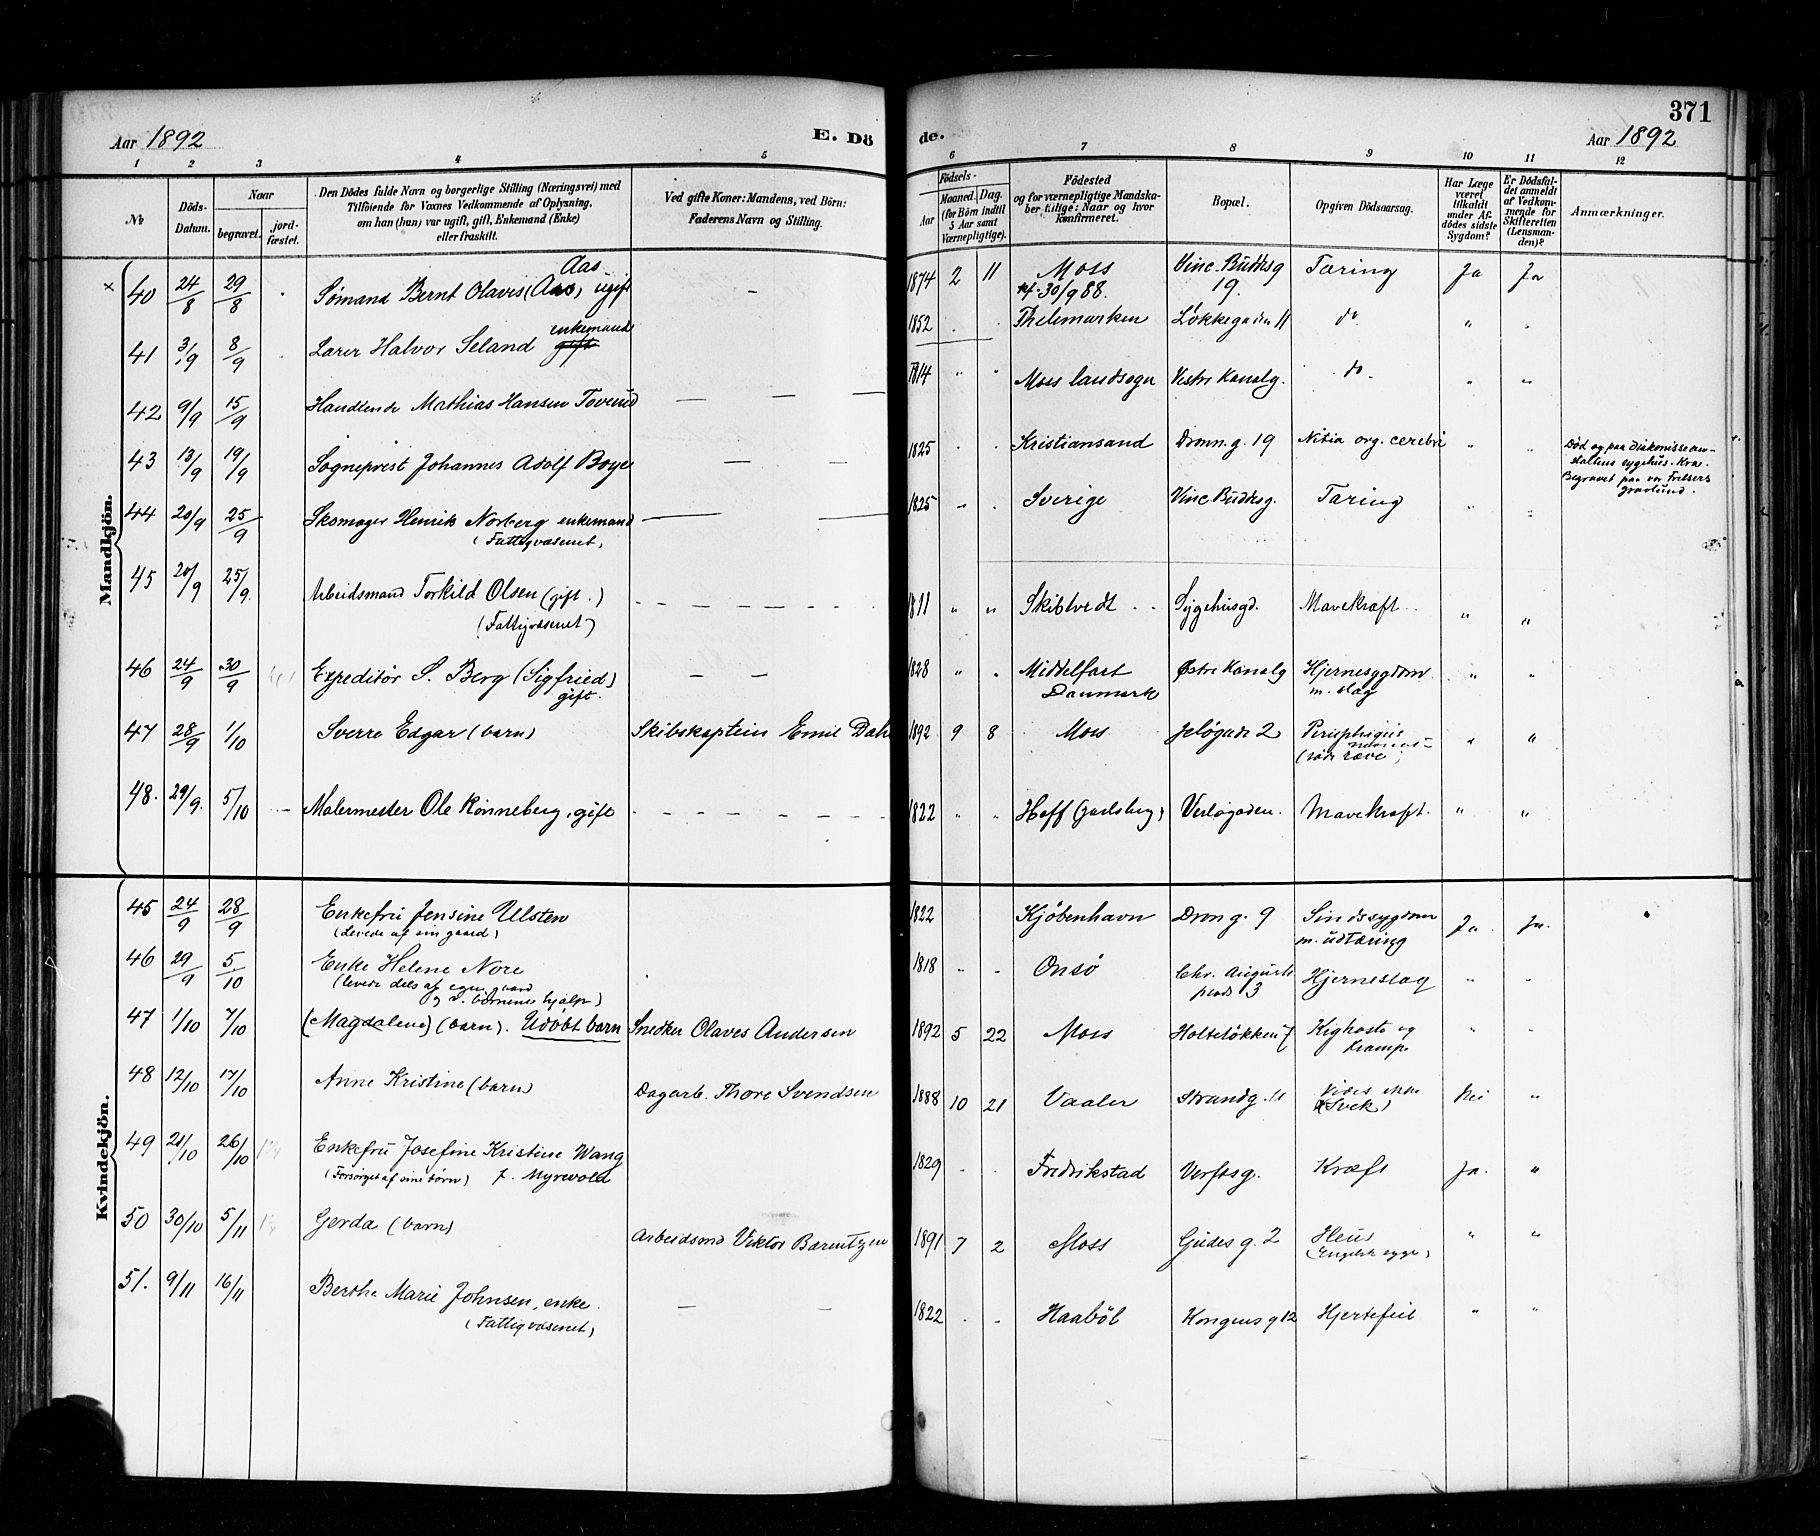 371
Aar 1892 E. Dö de. Aar 1892
1 2 3 4 5 6 7 8 9 10 11 12
No
Döds-Datum.
Naar
begravet.
jordfæstet.
Den Dödes fulde Navn og borgerlige Stilling (Næringsvei) med
Tilföiende for Voxnes Vedkommende af Oplysning,
om han (hun) var ugift, gift, Enkemand (Enke)
eller fraskilt.
Ved gifte Koner: Mandens, ved Börn:
Faderens Navn og Stilling.
Födsels-
Aar
Maaned. Dag.
(for Börn indtil
5 Aar samt
Værnepligtige).
Födested
og for værnepligtige Mandska-
ber tillige: Naar og hvor
konfirmeret.
Bopæl.
Opgiven Dödsaarsag.
Har Læge
været
tilkaldt
under Af-
dödes sidste
Sygdom?
Er Dödsfal-
det anmeldt
af Vedkom-
mende for
Skifteretten
(Lensman-
den)?
Anmærkninger.
Mandkjön.
× 40 24/8 29/8 Sømand Bernt Olaves (Aas) Aas ugift — 1874 2 11 Moss 30/9 88. Vinc. Buddesg 19. Tæring Ja Ja
41 3/9 8/9 Lærer Halvor Seland gift enkemand 1852 Thelemarken Løkkegaden 11 do " "
42 9/9 15/9 Handlende Mathias Hansen Toverud — — — 1814 " " Moss landsogn Vestre Kanalg. do. " "
43 13/9 19/9 Sogneprest Johannes Adolf Boye — — 1825 Kristiansand Dronn.g. 19 org. cerebri " " Død og paa Diakonissean-
staltens sygehus. Kra.
Begravet paa vor Frelsers
gravlund.
44 20/9 25/9 Skomager Henrik Norberg enkemand — — 1825 " Sverige Vinc Buddesg. Tæring " "
(Fattigvæsenet)
45 20/9 25/9 Arbeidsmand Torkild Olsen (gift.) 1811 " " Skibtvedt Sygehusgd. Mavekræft " "
(Fattigvæsenet)
46 24/9 30/9 Expeditør S. Berg (Sigfried) — — 1828 " " Middelfart Østre Kanalg Hjernesygdom " "
gift. Danmark m. slag
47 28/9 1/10 Sverre Edgar (barn) Skibskaptein Emil Dah 1892 9 8 Moss Jeløgade 2 " "
48. 29/9. 5/10 Malermester Ole Rønneberg, gift 1822 " " Hoff (Jarlsberg) Værløgaden. Mavekræft. " "
Kvindekjön.
45 24/9 28/9 Enkefru Jensine Ulsten 1822 Kjøbenhavn Dron g. 9 Sindssygdom Ja Ja.
(Levede af sin gaard) m. udtæring
46 29/9 5/10 Enke Helene Nore 1818 " Onsø Chr. Augusts Hjerneslag " "
(levede dels af egen gaard plads 3
og d. børnenes hjælp)
47 1/10 7/10 (Magdalene) (barn). Udøbt barn Snedker Olaves Andersen 1892 5 22 Moss Holteløkken 7 Kighoste og " "
Kramp.
48 12/10 17/10 Anne Kristine (barn) Dagarb. Thore Svendsen 1888 10 21 Vaaler Strandg. 11 Vides ikke Nei "
(Svek)
49 21/10 26/10 Enkefru Josefine Kristine Wang 1829 Fredrikstad Verftsg. Kræft Ja. "
(Forsørget af sine børn) f. Myrevold
50 30/10 5/11 Gerda (barn) Arbeidsmd Viktor Barentzen 1891 7 2 Moss Gudes g. 2 (Engelsk syge) " "
51. 9/11 16/11 Berthe Marie Johnsen, enke. — — 1822 Haabøl Kongens g 12 Hjertefeil " "
(Fattigvæsenet)